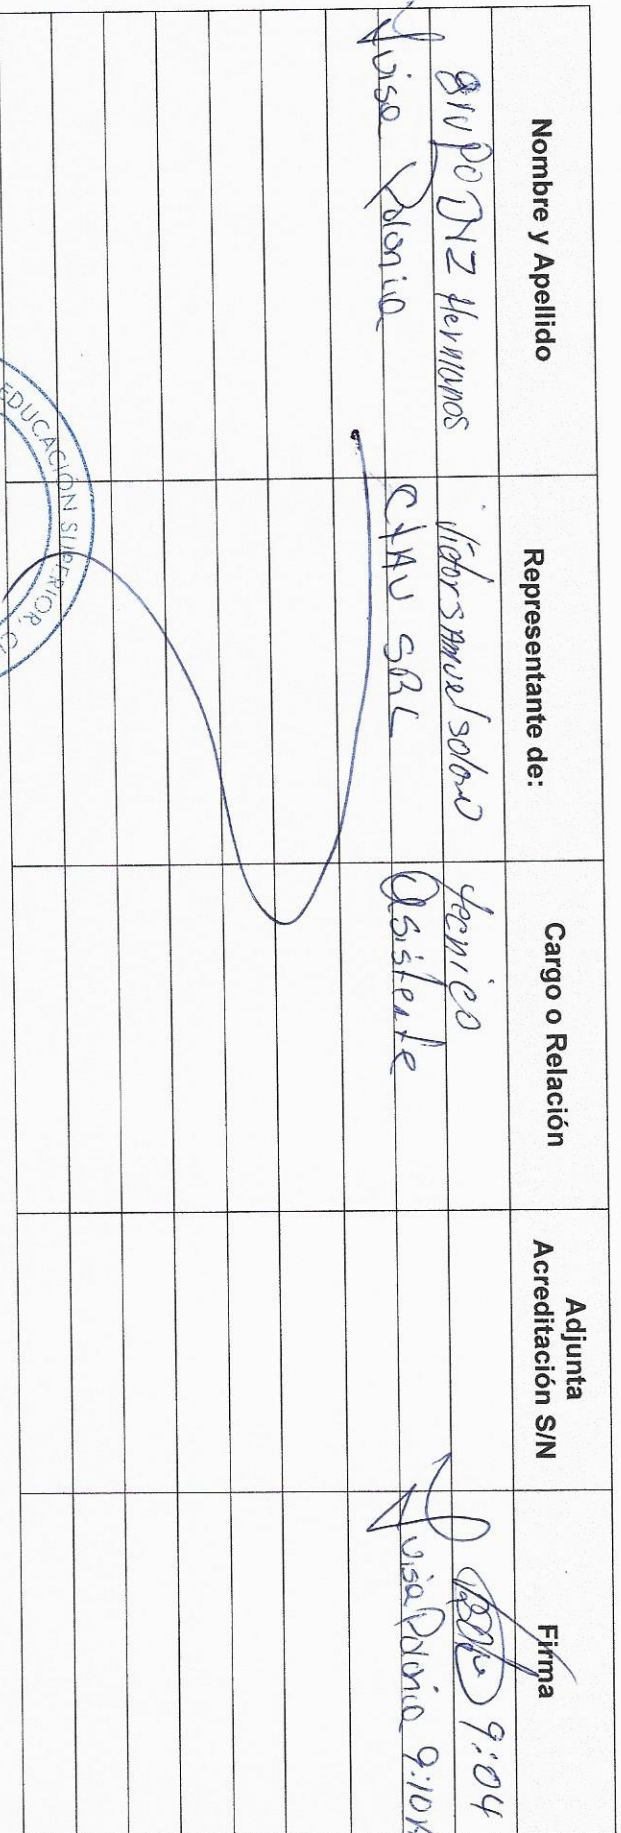 Nombre y Apellido
Representante de:
Cargo o Relación
Adjunta
Acreditación S/N
Firma
Grupo DIZ Hermanos
Victor Samuel Solano
tecnico
9:04
Luisa Polonia
SRL
Asistente
Luisa Polonia 9:10
EDUCACIÓN SUPERIOR, C